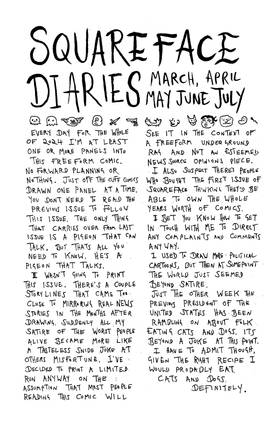 SQUAREFACE
DIARIES
MARCH, APRIL
MAY JUNE JULY
EVERY DAY FOR THE WHOLE
OF 2024 I'M AT LEAST
ONE OR MORE PANELS INTO
THIS FREEFORM COMIC.
NO FORWARD PLANNING OR
NOTHING. JUST OFF THE CUFF COMICS
DRAWN ONE PANEL AT A TIME.
YOU DONT NEED TO READ THE
PREVIOUS ISSUE TO FOLLOW
THIS ISSUE. THE ONLY THING
THAT CARRIES OVER FROM LAST
ISSUE IS A PIGEON THAT CAN
TALK. BUT THATS ALL YOU
NEED TO KNOW. HE'S A
PIGEON THAT TALKS.
I WASN'T GOING TO PRINT
THIS ISSUE. THERE'S A COUPLE
STORYLINES THAT CAME TOO
CLOSE TO MIRRORING REAL NEWS
STORIES IN THE MONTHS AFTER
DRAWING. SUDDENLY ALL MY
SATIRE OF THE WORST PEOPLE
ALIVE BECAME MORE LIKE
A TASTELESS SNIDE JOKE AT
OTHERS MISFORTUNE. I'VE
DECIDED TO PRINT A LIMITED
RUN ANYWAY ON THE
ASSUMPTION THAT MOST PEOPLE
READING THIS COMIC WILL
SEE IT IN THE CONTEXT OF
A FREEFORM UNDERGROUND
RAG AND NOT AN ESTEEMED
NEWS SOURCE OPINIONS PIECE.
I ALSO SUSPECT THERE'S PEOPLE
WHO BOUGHT THE FIRST ISSUE OF
SQUAREFACE THINKING THEY'D BE
ABLE TO OWN THE WHOLE
YEARS WORTH OF COMICS.
I BET YOU KNOW HOW TO GET
IN TOUCH WITH ME TO DIRECT
ANY COMPLAINTS AND COMMENTS
ANYWAY.
I USED TO DRAW POLITICAL
CARTOONS, BUT THEN AT SOME POINT
THE WORLD JUST SEEMED
BEYOND SATIRE.
JUST THE OTHER WEEK THE
PREVIOUS PRESIDENT OF THE
UNITED STATES HAS BEEN
RAMBLING ON ABOUT FOLK
EATING CATS AND DOGS. IT'S
BEYOND A JOKE AT THIS POINT.
I HAVE TO ADMIT THOUGH,
GIVEN THE RIGHT RECIPE I
WOULD PROBABLY EAT
CATS AND DOGS.
DEFINITELY.